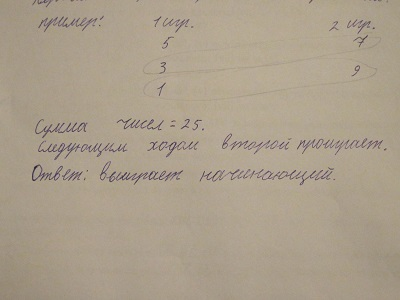 пример: 1 игр. 2 игр.
5 7
3 9
1
Сумма чисел = 25.
Следующим ходом второй проиграет.
Ответ: выиграет начинающий.